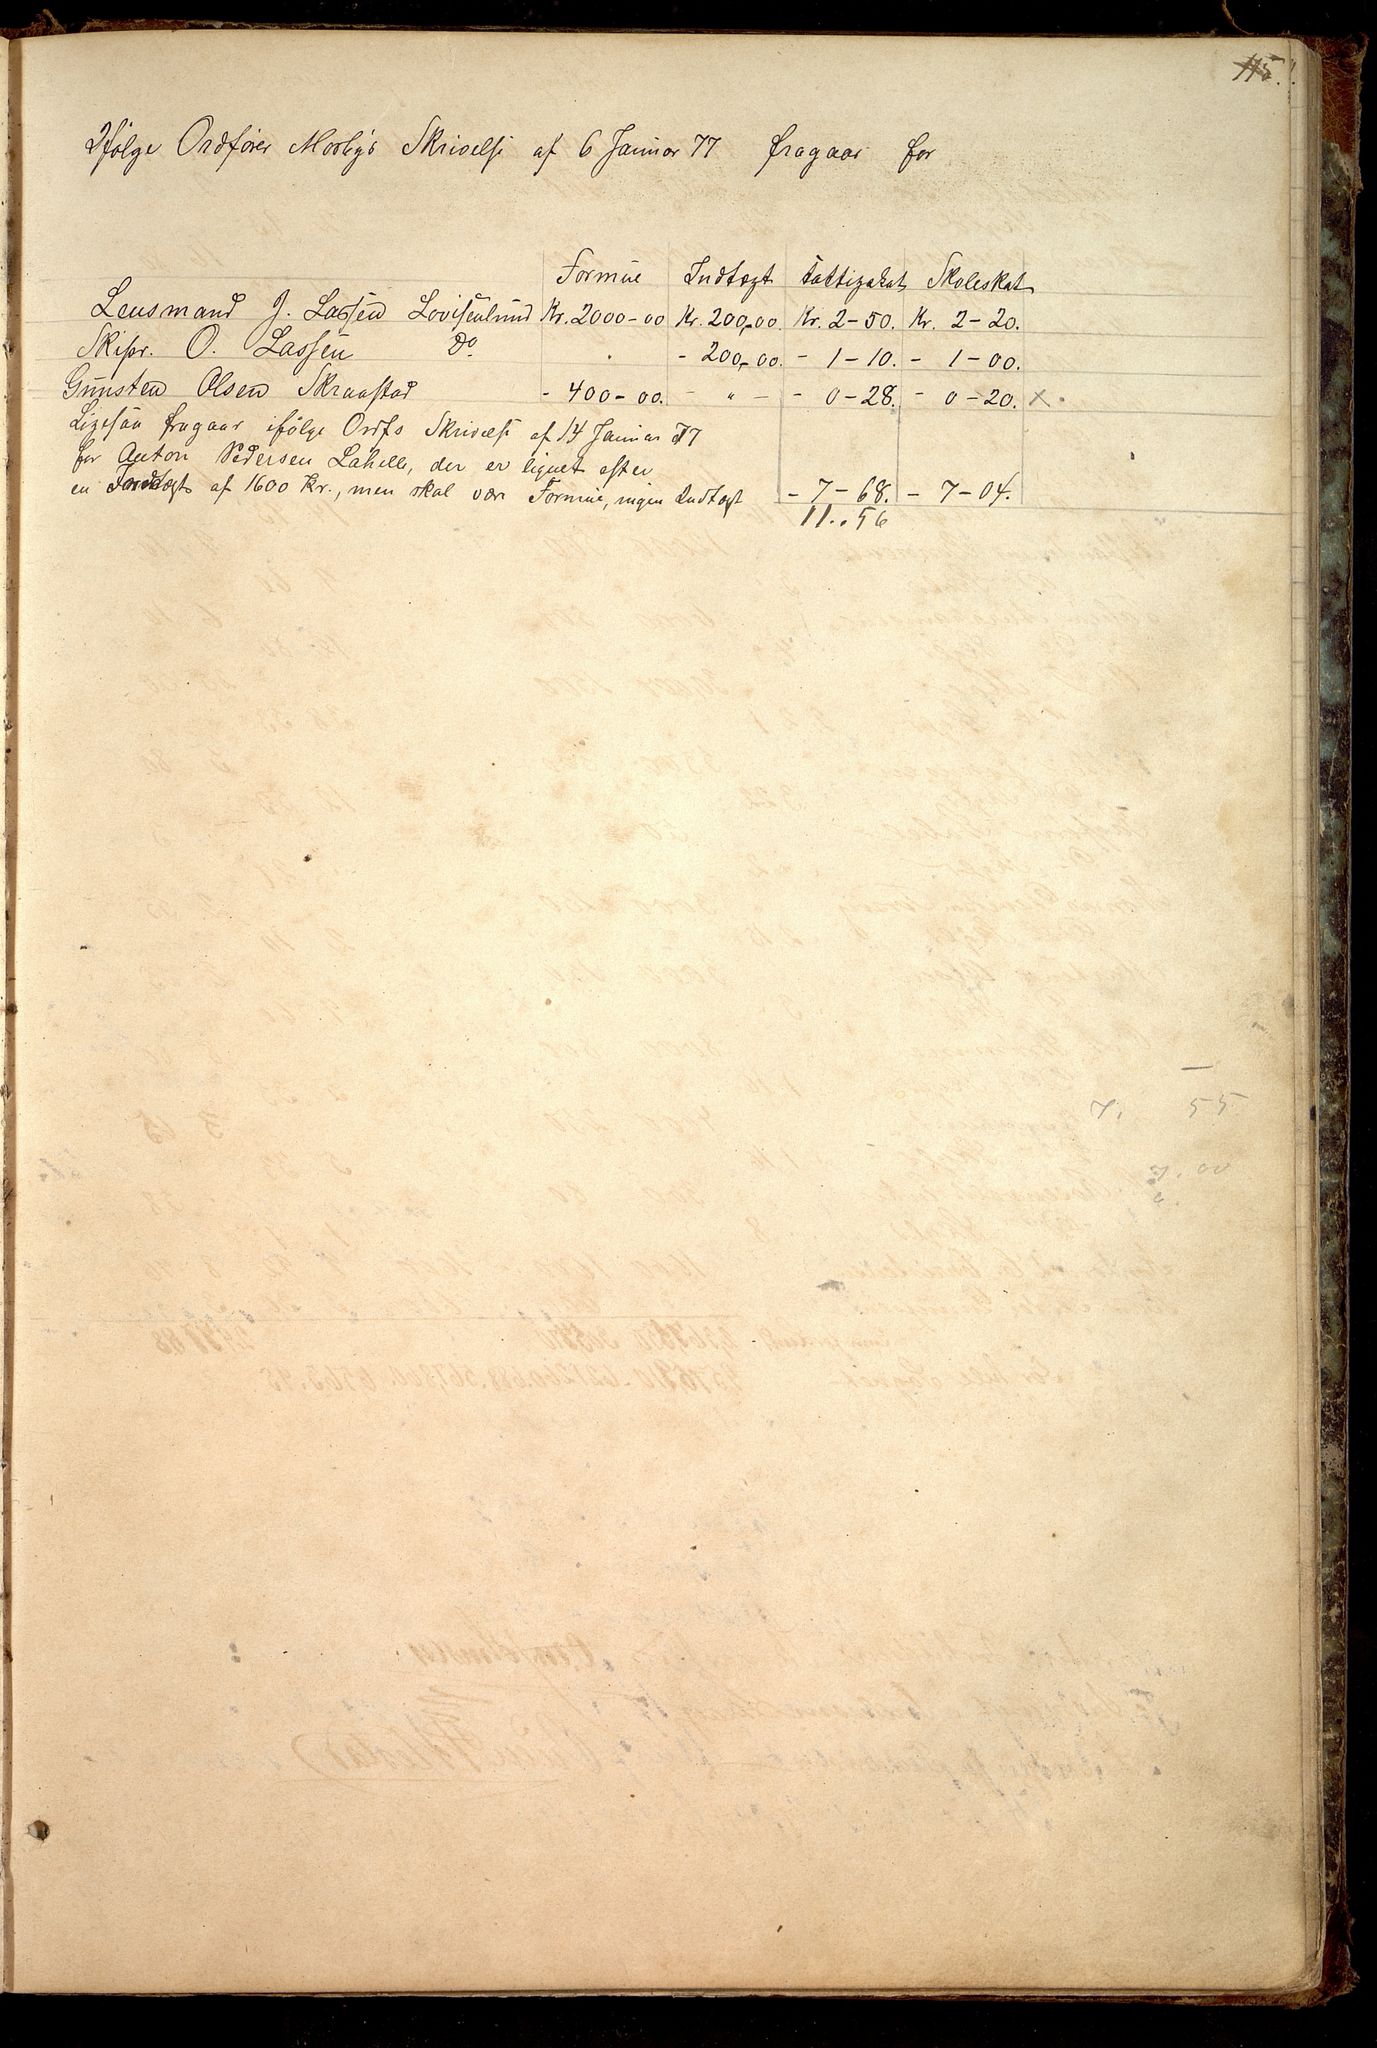 115.
Ifølge Ordfører Mosbys Skrivelse af 6 Januar 77 fragaar for
Formue Indtægt Fattigskat Skoleskat
Lensmand J. Lassen Lovisenlund Kr. 2000-00 Kr. 200-00. Kr. 2-50. Kr. 2-20.
Skipr. O. Lassen Do - 200-00. - 1-10. - 1-00.
Gunsten Olsen Skraastad - 400-00. - " - - 0-28. - 0-20. x.
Ligesaa fragaar ifølge Ordfs Skrivelse af 14 Januar 77
for Anton Pedersen Lahelle, der er lignet efter
en Indtægt af 1600 Kr., men skal være Formue, ingen Indtægt - 7-68. - 7-04.
11..56
7. 55
7.00